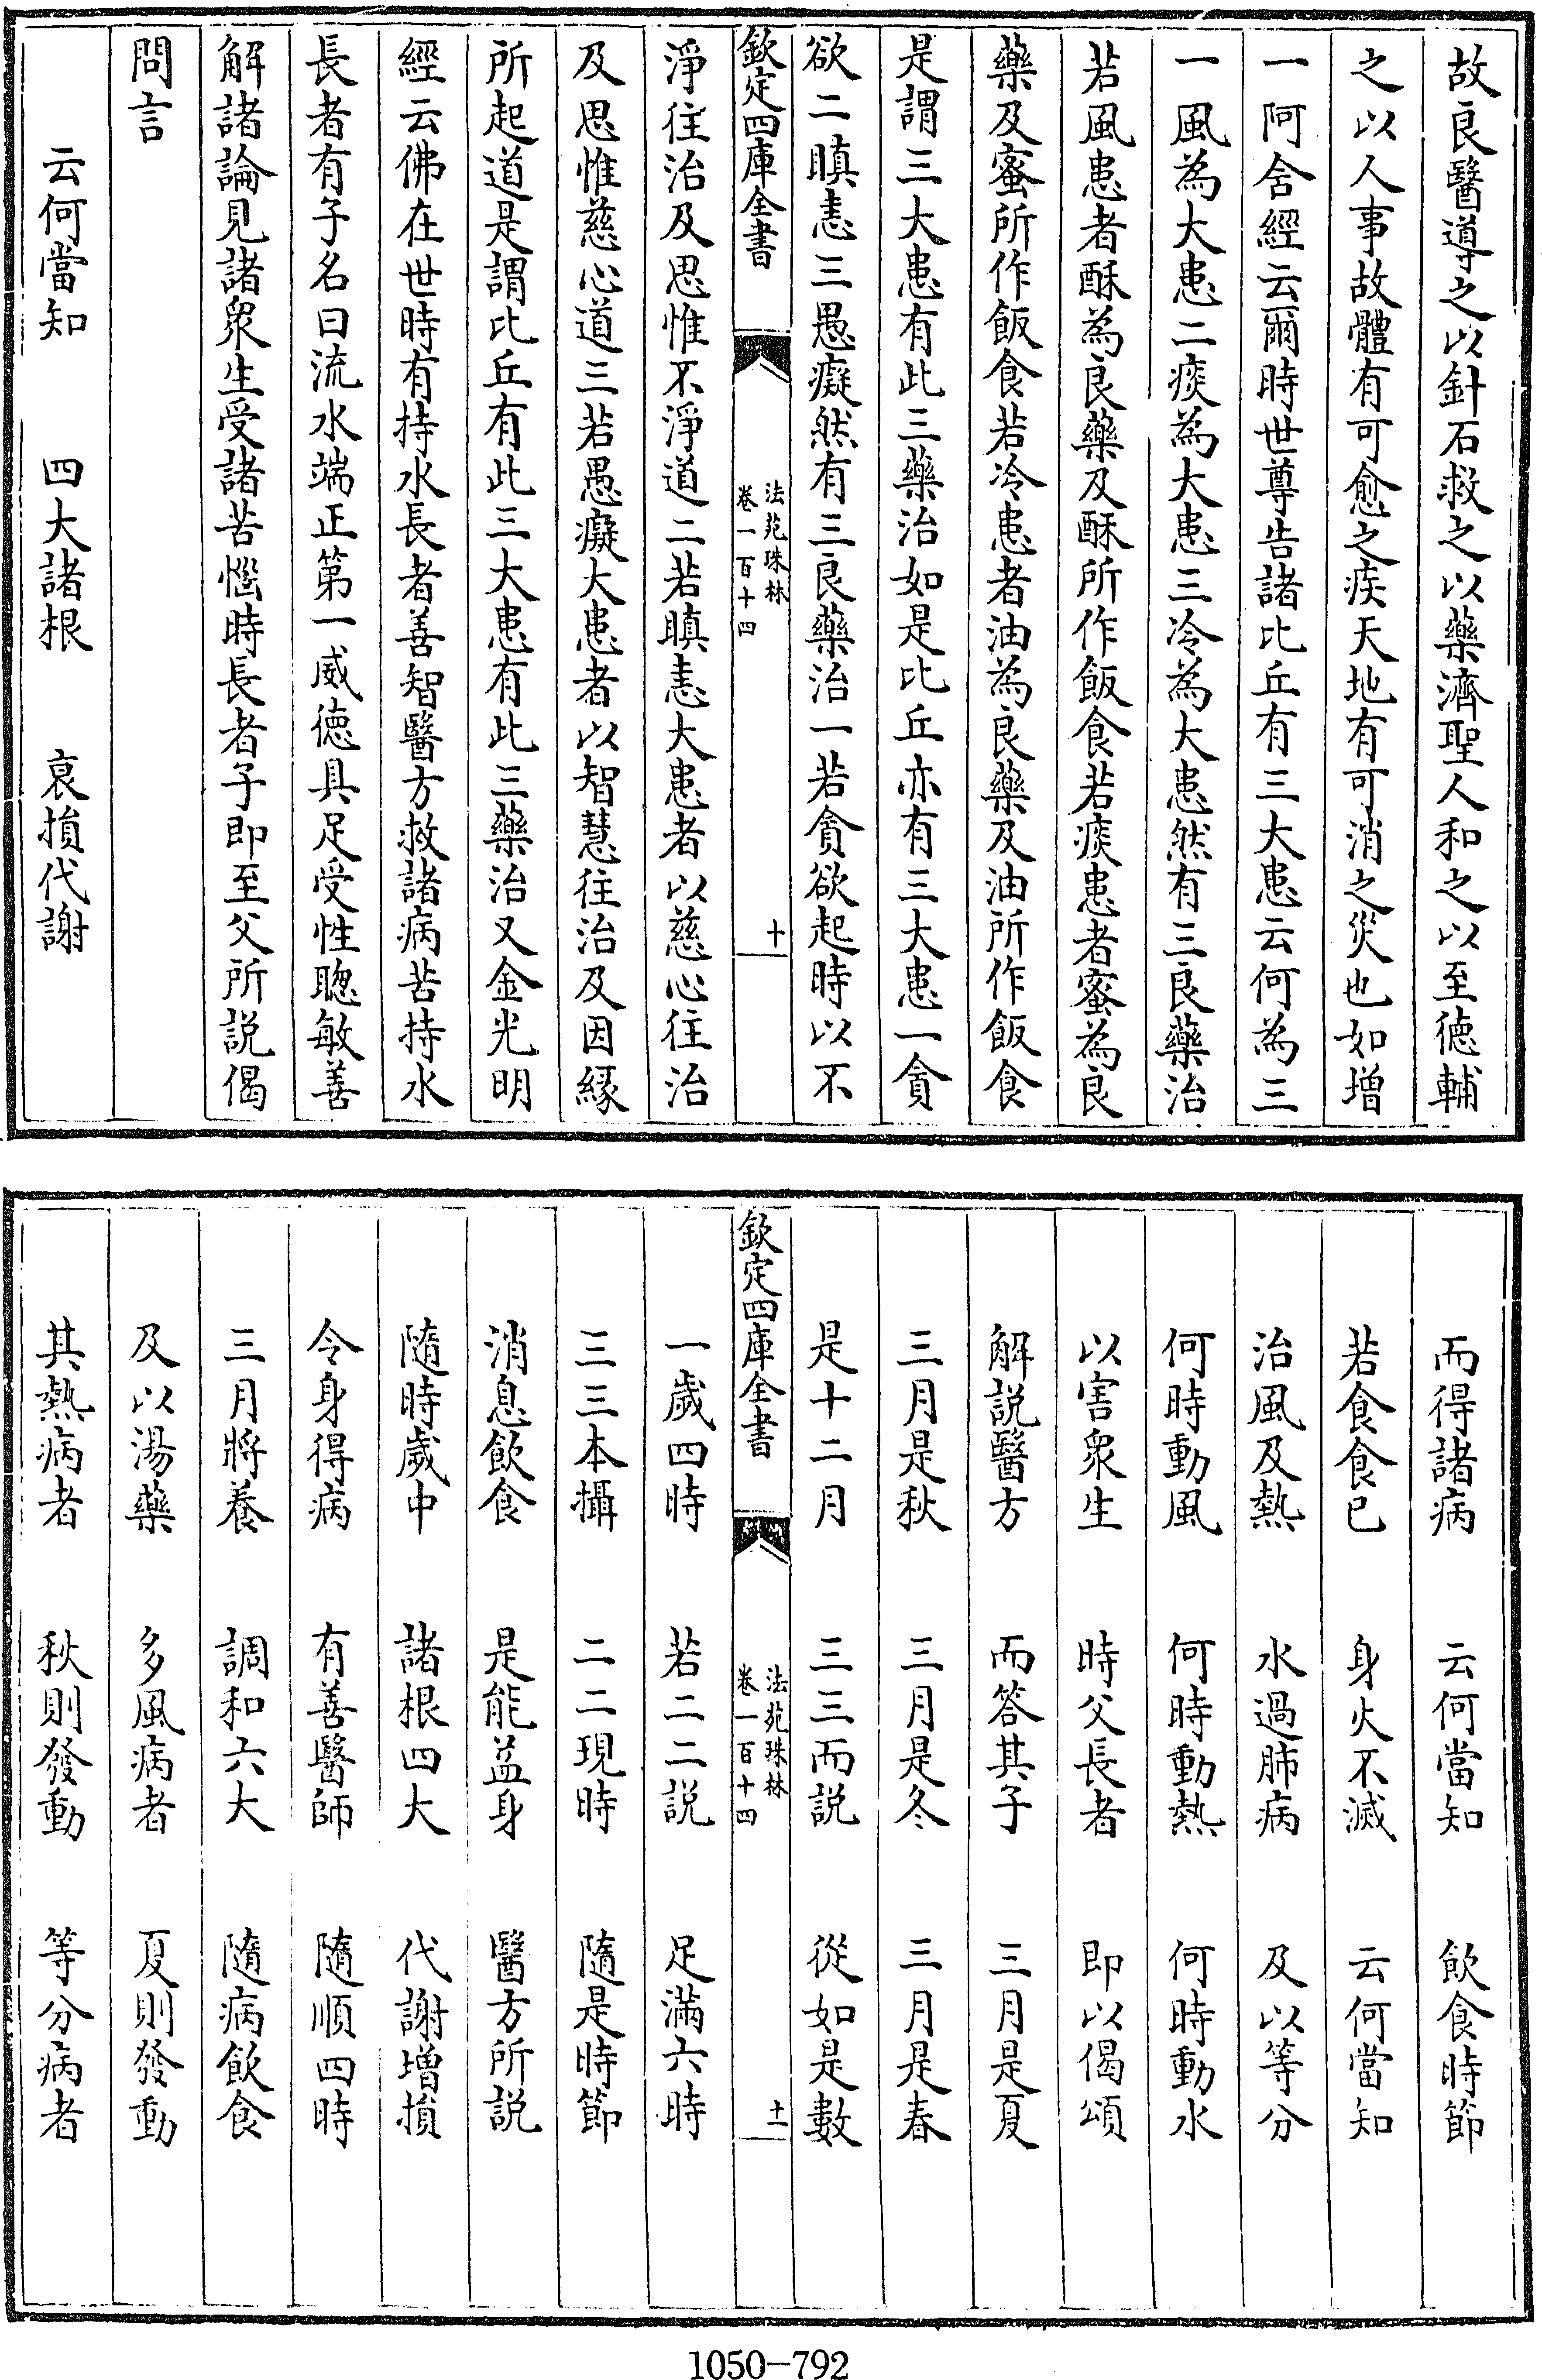 故良醫導之以針石救之以藥濟聖人和之以至德輔
之以人事故體有可愈之疾天地有可消之災也如增
一阿含經云爾時世尊告諸比丘有三大患云何為三
一風為大患二痰為大患三冷為大患然有三良藥治
若風患者酥為良藥及酥所作飯食若痰患者蜜為良
藥及蜜所作飯食若冷患者油為良藥及油所作飯食
是謂三大患有此三藥治如是比丘亦有三大患一貪
欲二瞋恚三愚癡然有三良藥治一若貪欲起時以不
欽定四庫全書
法苑珠林
卷一百十四
十
淨往治及思惟不淨道二若瞋恚大患者以慈心往治
及思惟慈心道三若愚癡大患者以智慧往治及因緣
所起道是謂比丘有此三大患有此三藥治又金光明
經云佛在世時有持水長者善智醫方救諸病苦持水
長者有子名曰流水端正第一威德具足受性聰敏善
解諸論見諸衆生受諸苦惱時長者子即至父所説偈
問言
云何當知　四大諸根　衰損代謝
而得諸病　云何當知　飲食時節
若食食已　身火不滅　云何當知
治風及熱　水過肺病　及以等分
何時動風　何時動熱　何時動水
以害衆生　時父長者　即以偈頌
解説醫方　而答其子　三月是夏
三月是秋　三月是冬　三月是春
是十二月　三三而説　從如是數
欽定四庫全書
法苑珠林
卷一百十四
十一
一歲四時　若二二説　足滿六時
三三本攝　二二現時　隨是時節
消息飲食　是能益身　醫方所説
隨時歲中　諸根四大　代謝增損
令身得病　有善醫師　隨順四時
三月將養　調和六大　隨病飲食
及以湯藥　多風病者　夏則發動
其熱病者　秋則發動　等分病者
1050-792